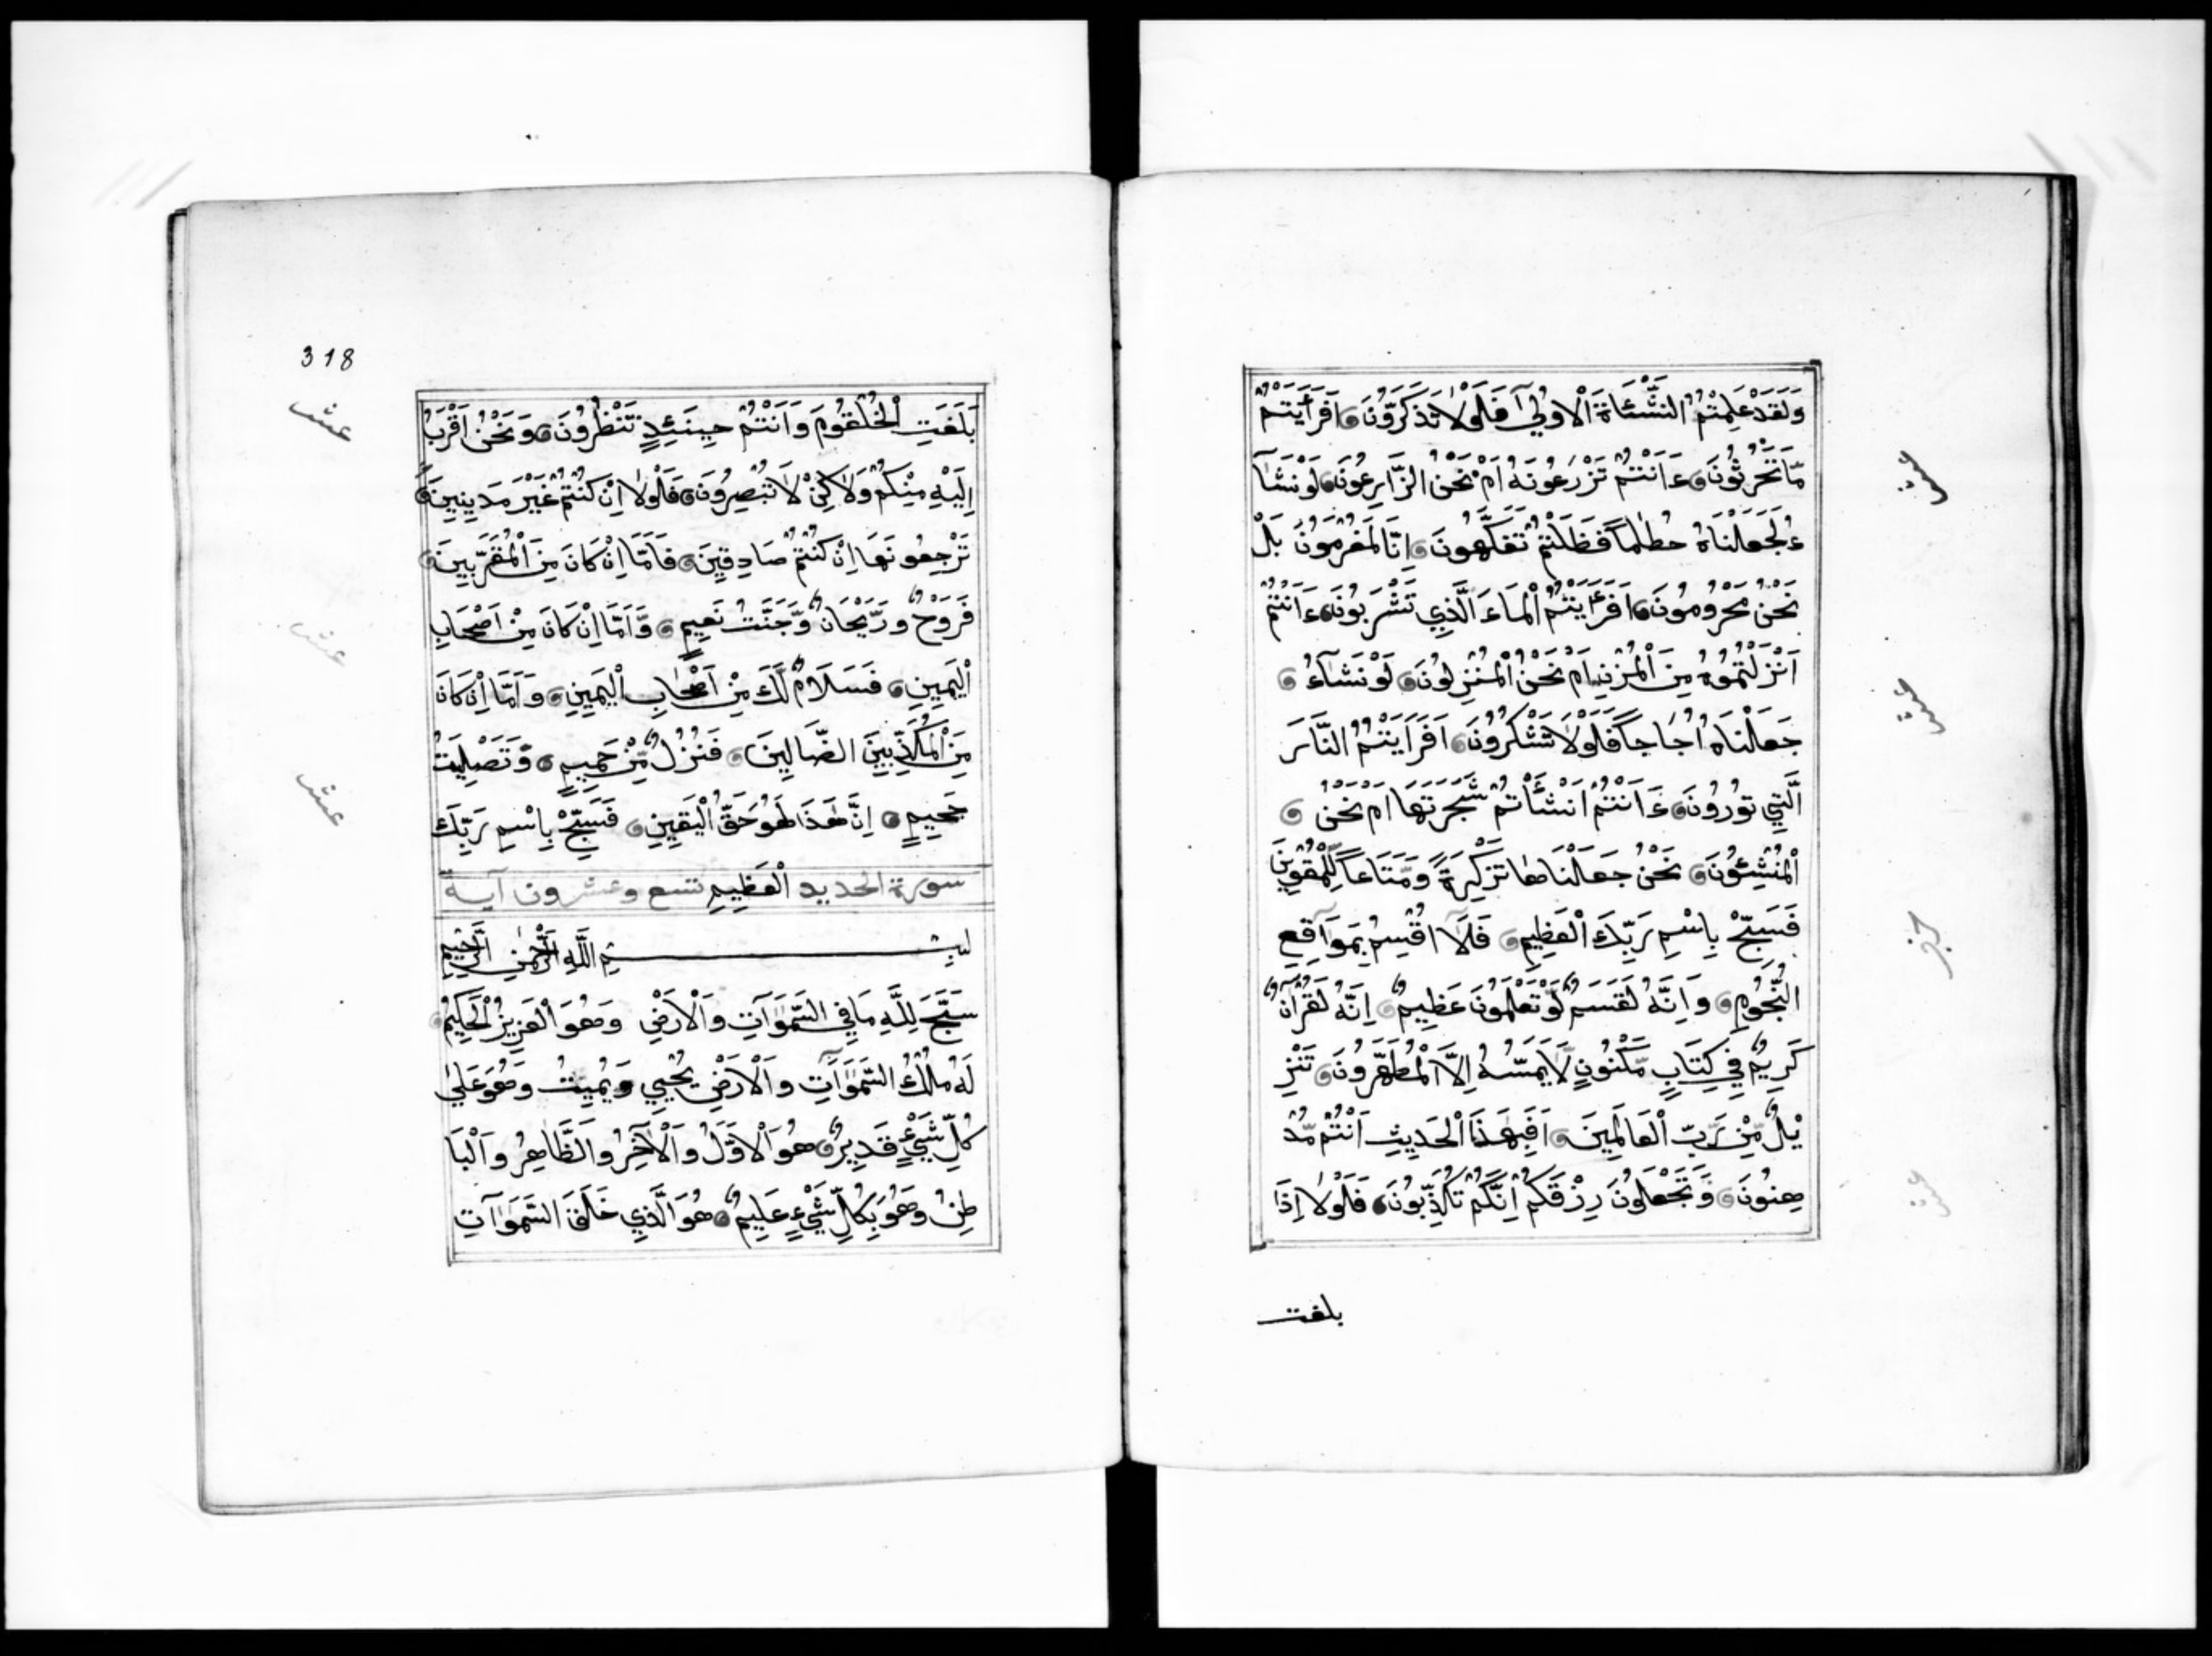 وَلَقَدْ عَلِمْتُمُ النَّشْئَاةَ الْاُولَىٰٓ فَلَوْلَا تَذَكَّرُونَ اَفَرَأَيْتُمْ
مَّا تَحْرُثُونَ ءَاَنْتُمْ تَزْرَعُونَهُ اَمْ نَحْنُ الزَّارِعُونَ لَوْ نَشَآ
ءُ لَجَعَلْنَاهُ حُطَامًا فَظَلْتُمْ تَفَكَّهُونَ اِنَّا لَمُغْرَمُونَ بَلْ
نَحْنُ مَحْرُومُونَ اَفَرَءَيْتُمُ الْمَاءَ الَّذِي تَشْرَبُونَ ءَاَنْتُمْ
اَنْزَلْتُمُوهُ مِنَ الْمُزْنِ اَمْ نَحْنُ الْمُنْزِلُونَ لَوْ نَشَآءُ
جَعَلْنَاهُ اُجَاجًا فَلَوْلَا تَشْكُرُونَ اَفَرَاَيْتُمُ النَّارَ
الَّتِي تُورُونَ ءَاَنْتُمْ اَنْشَأْتُمْ شَجَرَتَهَا اَمْ نَحْنُ
الْمُنْشِئُونَ نَحْنُ جَعَلْنَاهَا تَزْكِرَةً وَّمَتَاعًا لِّلْمُقْوِينَ
فَسَبِّحْ بِاسْمِ رَبِّكَ الْعَظِيمِ فَلَآ اُقْسِمُ بِمَوَاقِعِ
النُّجُومِ وَاِنَّهُ لَقَسَمٌ لَّوْ تَعْلَمُونَ عَظِيمٌ اِنَّهُ لَقُرْآنٌ
كَرِيمٌ فِي كِتَابٍ مَّكْنُونٍ لَّا يَمَسُّهُ اِلَّا الْمُطَهَّرُونَ تَنْزِ
يْلٌ مِّنْ رَّبِّ الْعَالَمِينَ اَفَبِهَذَا الْحَدِيثِ اَنْتُمْ مُّدْ
هِنُونَ وَتَجْعَلُونَ رِزْقَكُمْ اَنَّكُمْ تُكَذِّبُونَ فَلَوْلَا اِذَا
بلغت
عشر
عشر
حزب
عشر
318
بَلَغَتِ الْحُلْقُومَ وَاَنْتُمْ حِينَئِذٍ تَنْظُرُونَ وَنَحْنُ اَقْرَبُ
اِلَيْهِ مِنْكُمْ وَلَاكِنْ لَا تُبْصِرُونَ فَلَوْلَا اِنْ كُنْتُمْ غَيْرَ مَدِينِينَ
تَرْجِعُونَهَا اِنْ كُنْتُمْ صَادِقِينَ فَاَمَّا اِنْ كَانَ مِنَ الْمُقَرَّبِينَ
فَرَوْحٌ وَرَيْحَانٌ وَّجَنَّتُ نَعِيمٍ وَّاَمَّا اِنْ كَانَ مِنْ اَصْحَابِ
الْيَمِينِ فَسَلَامٌ لَّكَ مِنْ اَصْحَابِ الْيَمِينِ وَاَمَّا اِنْ كَانَ
مِنَ الْمُكَذِّبِينَ الضَّالِينَ فَنُزُلٌ مِّنْ حَمِيمٍ وَّتَصْلِيَتُ
جَحِيمٍ اِنَّ هَذَا لَهُوَ حَقُّ الْيَقِينِ فَسَبِّحْ بِاسْمِ رَبِّكَ
سورة الحديد الْعَظِيمِ تسع وعشرون آية
بِسْمِ اللَّهِ الرَّحْمٰنِ الرَّحِيمِ
سَبَّحَ لِلَّهِ مَا فِي السَّمَوَاتِ وَالْاَرْضِ وَهُوَ الْعَزِيزُ الْحَكِيمُ
لَهُ مُلْكُ السَّمَوَاتِ وَالْاَرْضِ يُحْيِي وَيُمِيتُ وَهُوَ عَلَىٰ
كُلِّ شَيْءٍ قَدِيرٌ هُوَ الْاَوَّلُ وَالْآخِرُ وَالظَّاهِرُ وَالْبَا
طِنُ وَهُوَ بِكُلِّ شَيْءٍ عَلِيمٌ هُوَ الَّذِي خَلَقَ السَّمَوَاتِ
عشر
عشر
عشر